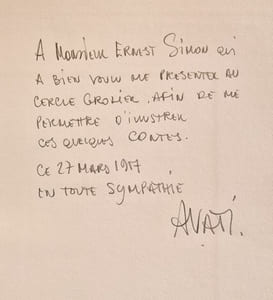 A Monsieur ERNEST SIMON qui
A BIEN VOULU ME PRESENTER AU
CERCLE GROLIER. AFIN DE ME
PERMETTRE D'ILLUSTRER
CES QUELQUES CONTES.
CE 27 MARS 1957
EN TOUTE SYMPATHIE
AVATI.